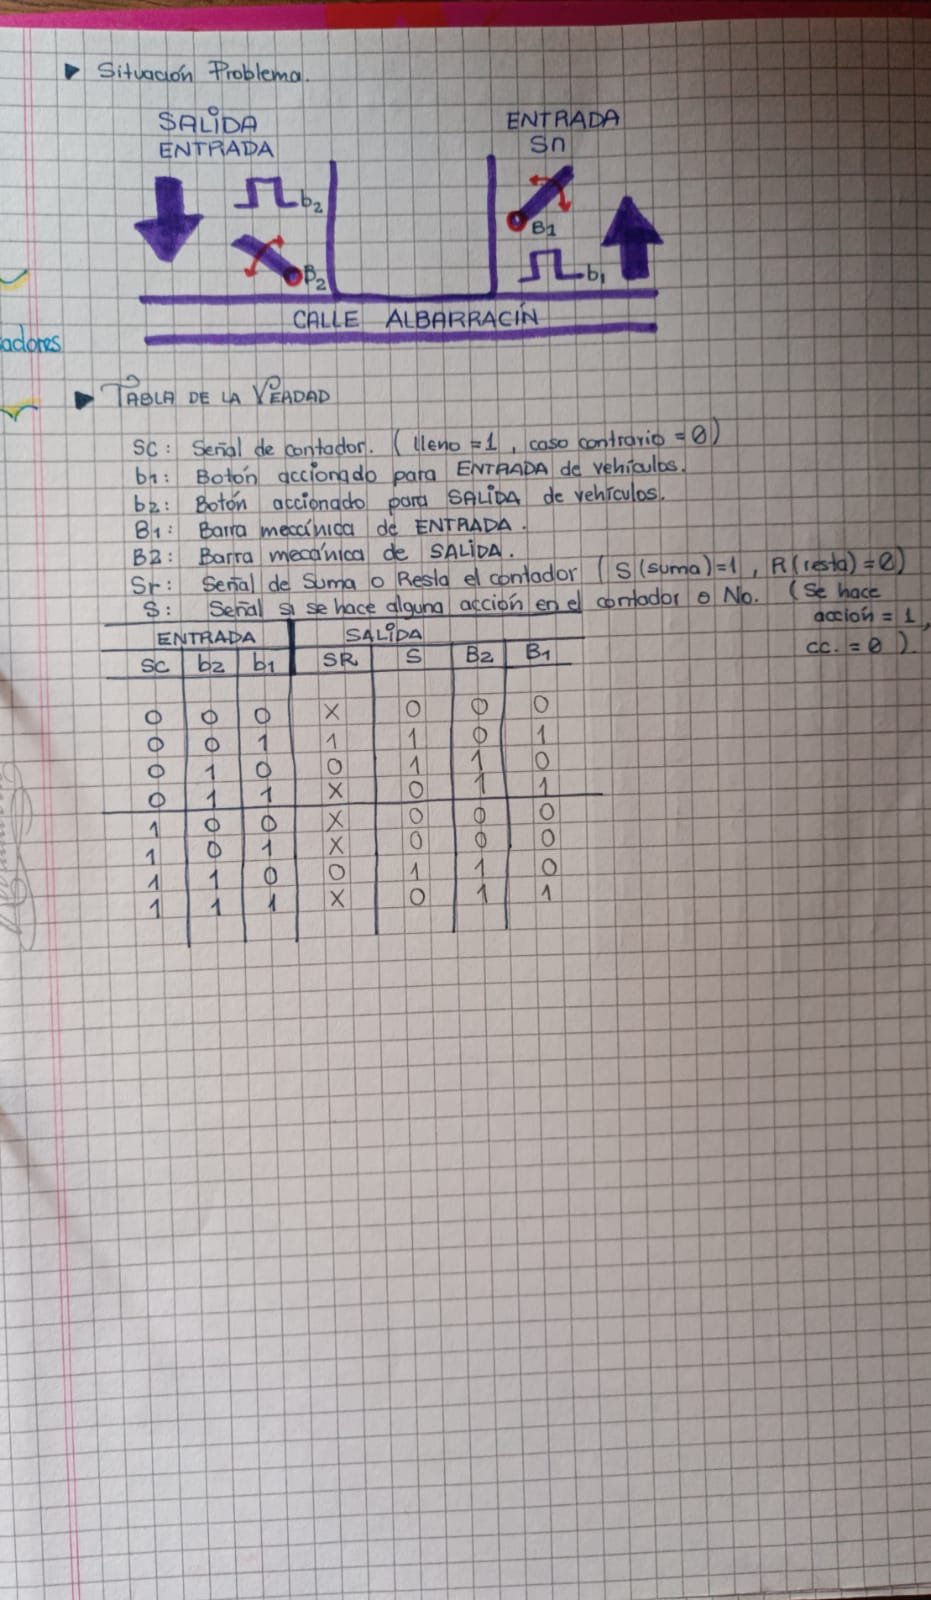 ► Situación Problema.
SALIDA
ENTRADA
ENTRADA
Sn
b2
B2
B1
b1
CALLE ALBARRACÍN
adores
► TABLA DE LA VERDAD
SC: Señal de contador. (lleno = 1, caso contrario = 0)
b1: Botón accionado para ENTRADA de vehículos.
b2: Botón accionado para SALIDA de vehículos.
B1: Barra mecánica de ENTRADA.
B2: Barra mecánica de SALIDA.
Sr: Señal de Suma o Resta el contador (S(suma)=1, R(resta)=0)
S: Señal si se hace alguna acción en el contador o No. (Se hace
acción = 1,
cc. = 0).
ENTRADA SALIDA
SC b2 b1 SR S B2 B1
0 0 0 X 0 0 0
0 0 1 1 1 0 1
0 1 0 0 1 1 0
0 1 1 X 0 1 1
1 0 0 X 0 0 0
1 0 1 X 0 0 0
1 1 0 0 1 1 0
1 1 1 X 0 1 1